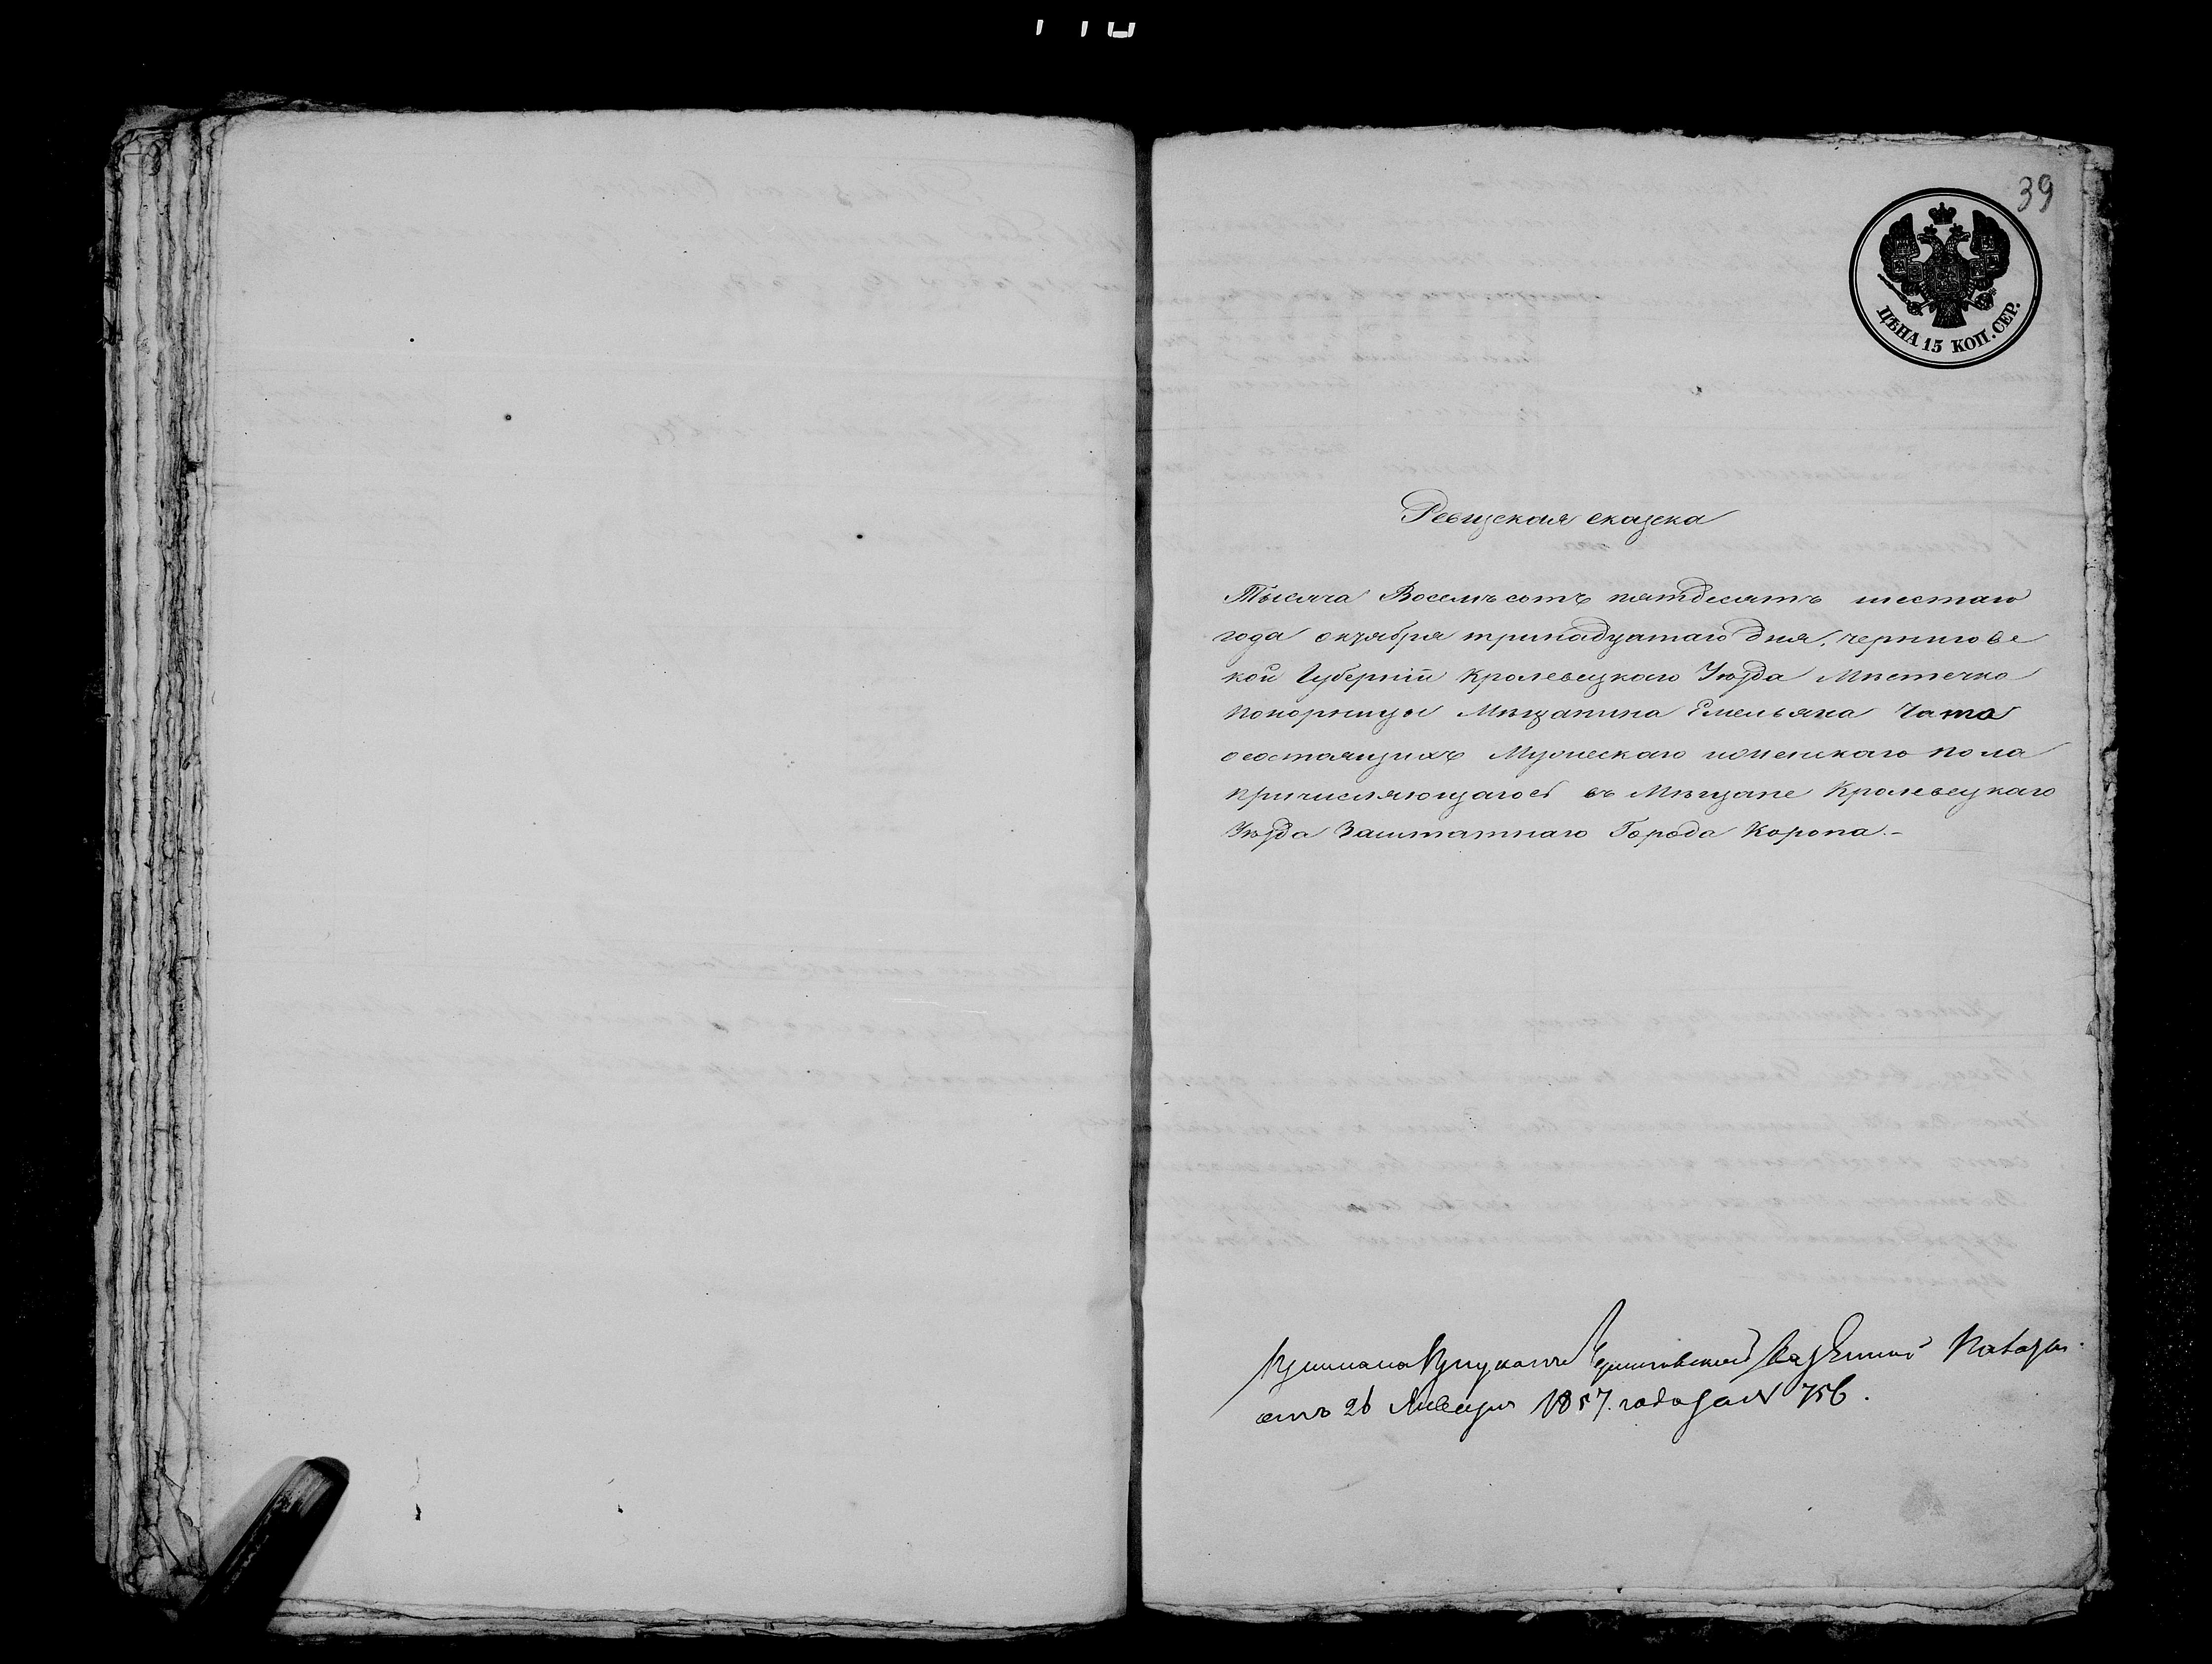 39
ЦѢНА 15 КОП. СЕР.
Ревизская сказка
Тысяча Восемьсотъ пятдесятъ шестаго
года октября тринадцатаго дня, чернигов с
кой Губерніи Кролевецкаго Уѣзда Мѣстечка
Понорницы Мѣщанина Емельяна Чата
о состоящихъ Мужескаго и женскаго пола
причисляющагося въ Мѣщане Кролевецкаго
Уѣзда Заштатнаго Города Коропа.-
Черниговской Казенной Палаты
отъ 26 Января 1857. года за N 756.